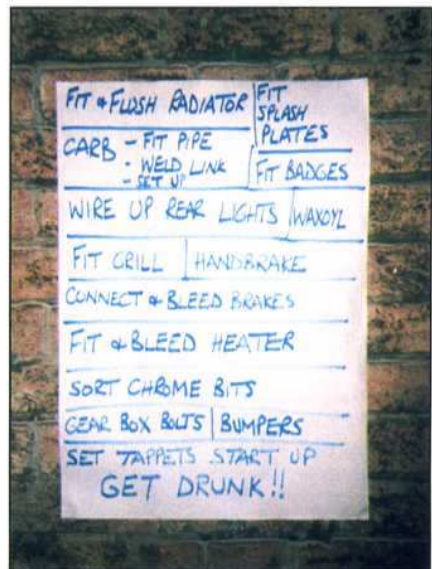 FIT & FLUSH RADIATOR
FIT
SPLASH
PLATES
CARB - FIT PIPE
- WELD LINK
- SET UP
FIT BADGES
WIRE UP REAR LIGHTS
WAXOYL
FIT GRILL
HANDBRAKE
CONNECT & BLEED BRAKES
FIT & BLEED HEATER
SORT CHROME BITS
GEAR BOX BOLTS
BUMPERS
SET TAPPETS START UP
GET DRUNK!!